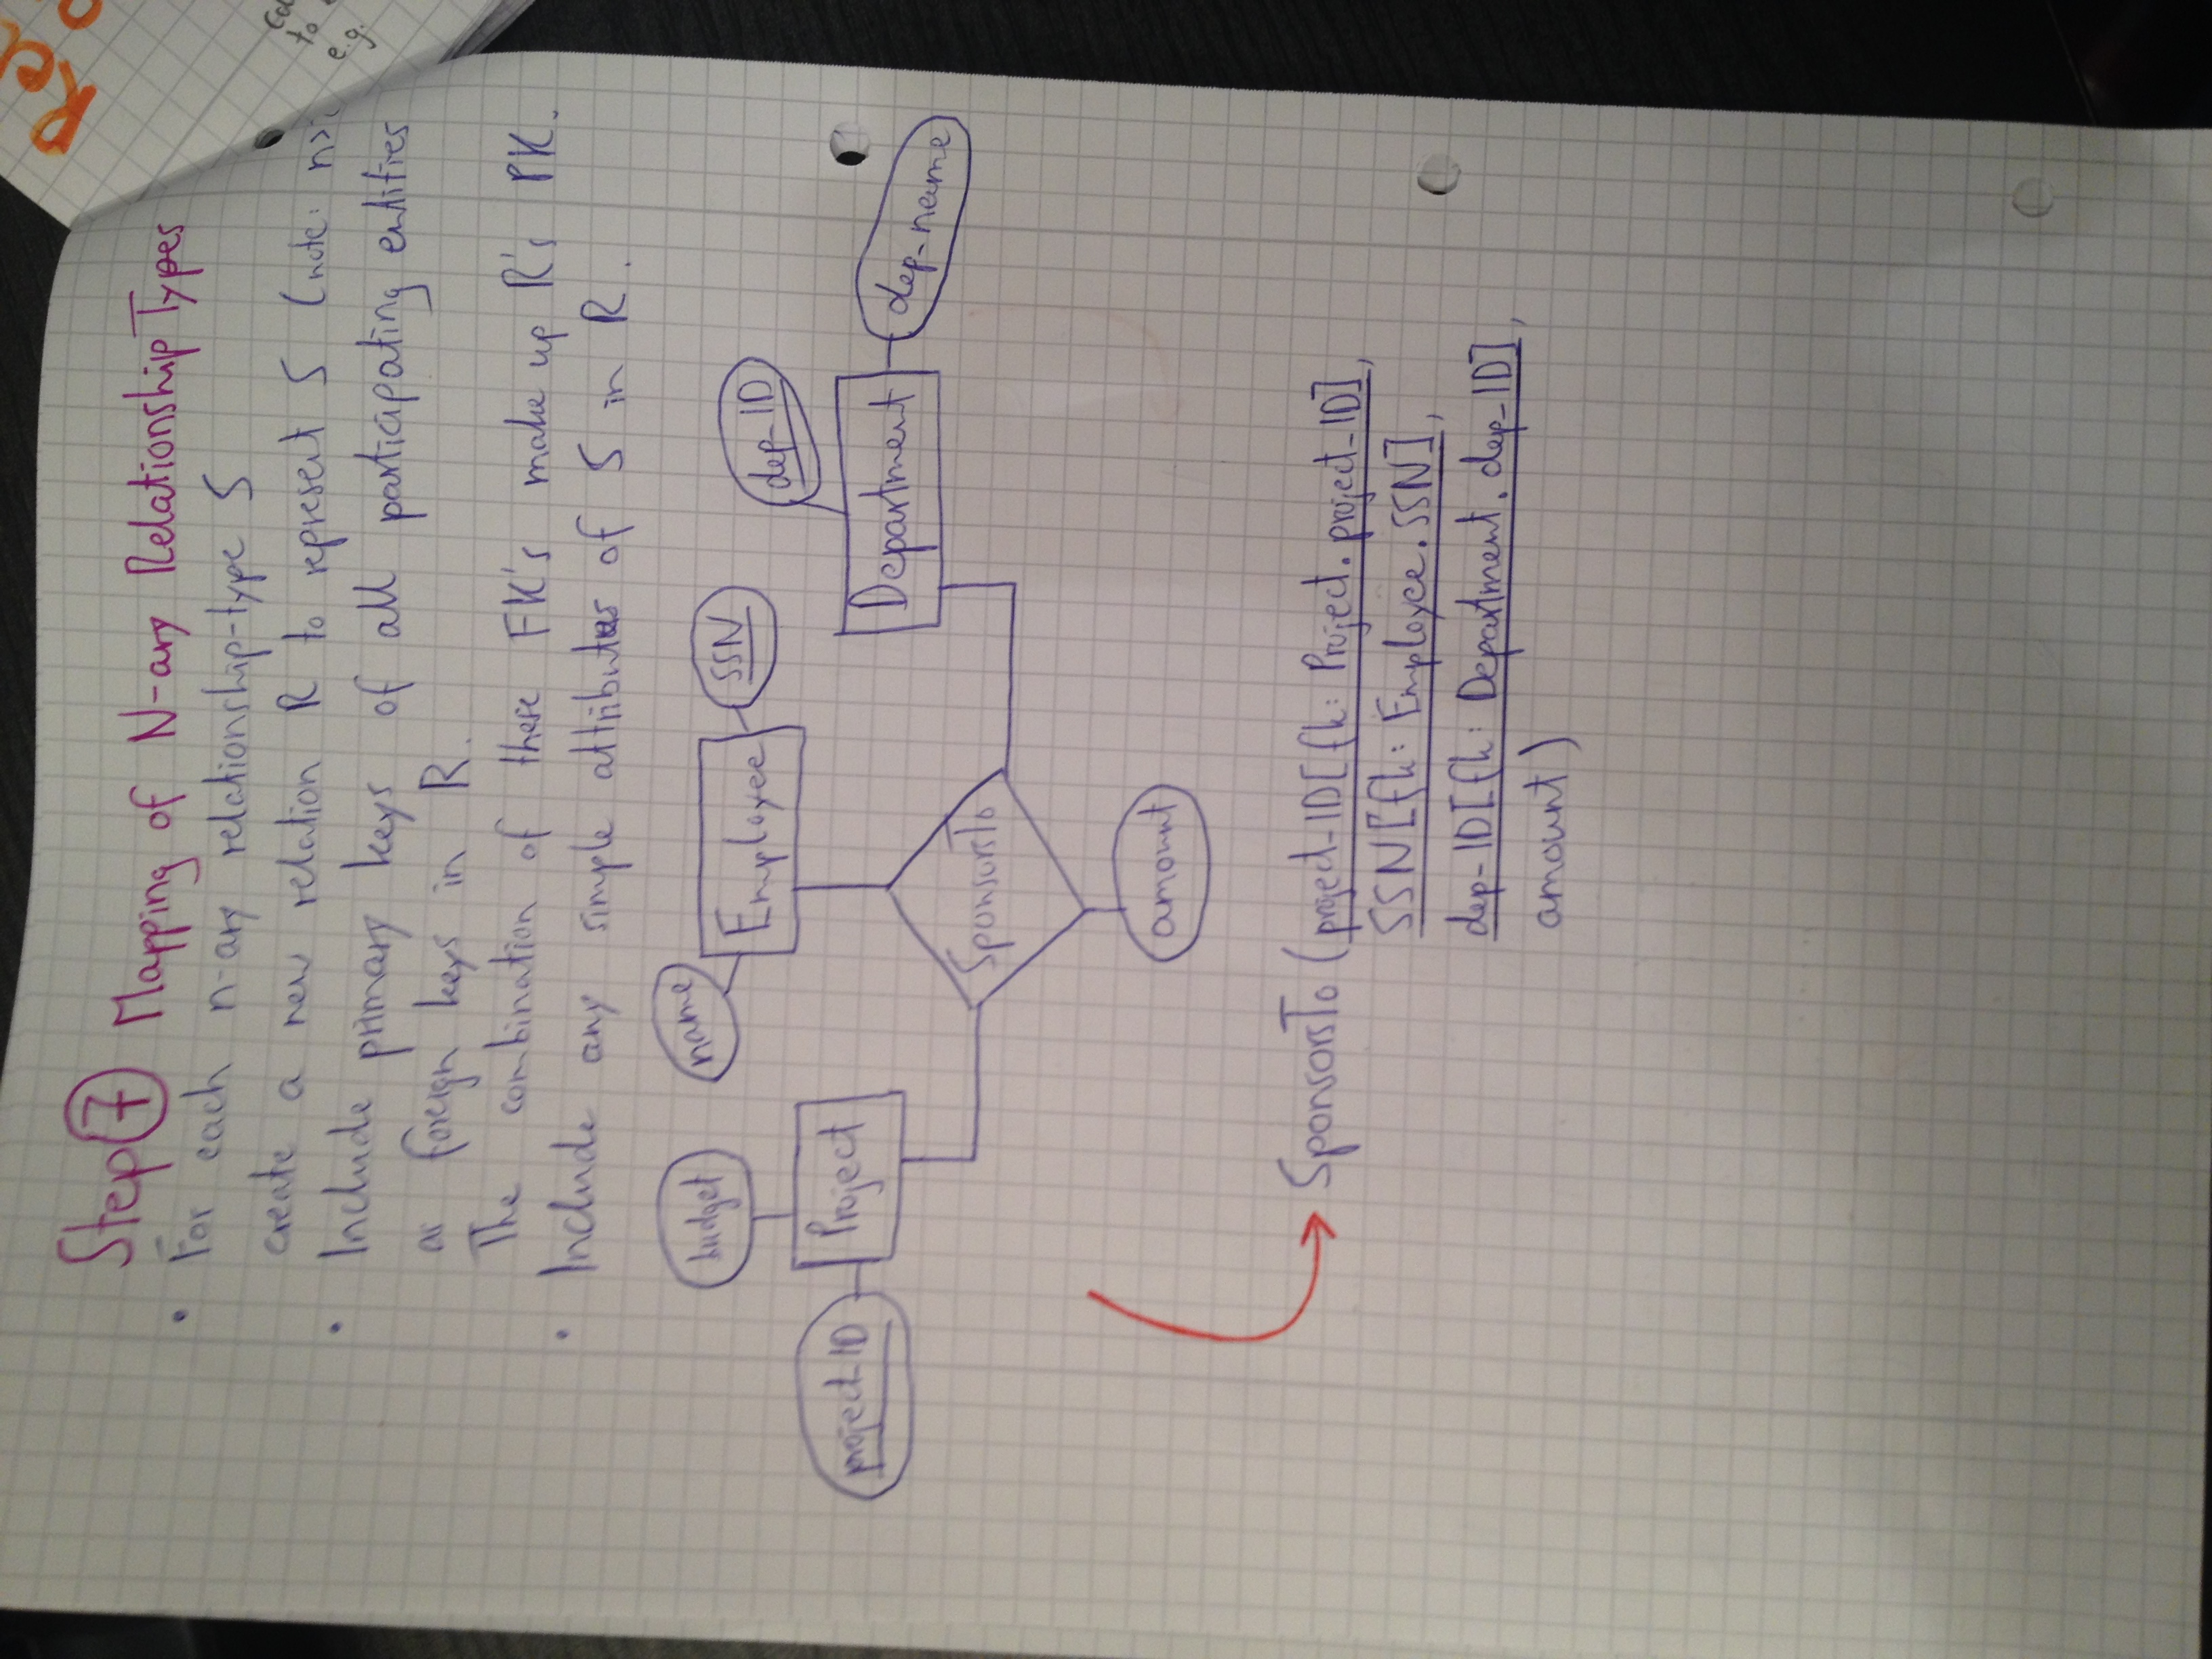 Step 7 Mapping of N-ary Relationship Types
• For each n-ary relationship-type S
create a new relation R to represent S (note: n>
• Include primary keys of all participating entities
as foreign keys in R.
The combination of these FK's make up R's PK.
• Include any simple attributes of S in R.
budget
name
Employee
SSN
dep_ID
project_ID
Project
Department
dep_name
SponsorsTo
amount
SponsorsTo (project_ID[fk: Project.project_ID],
SSN[fk: Employee.SSN],
dep_ID[fk: Department.dep_ID],
amount)
Rel
to
e.g.